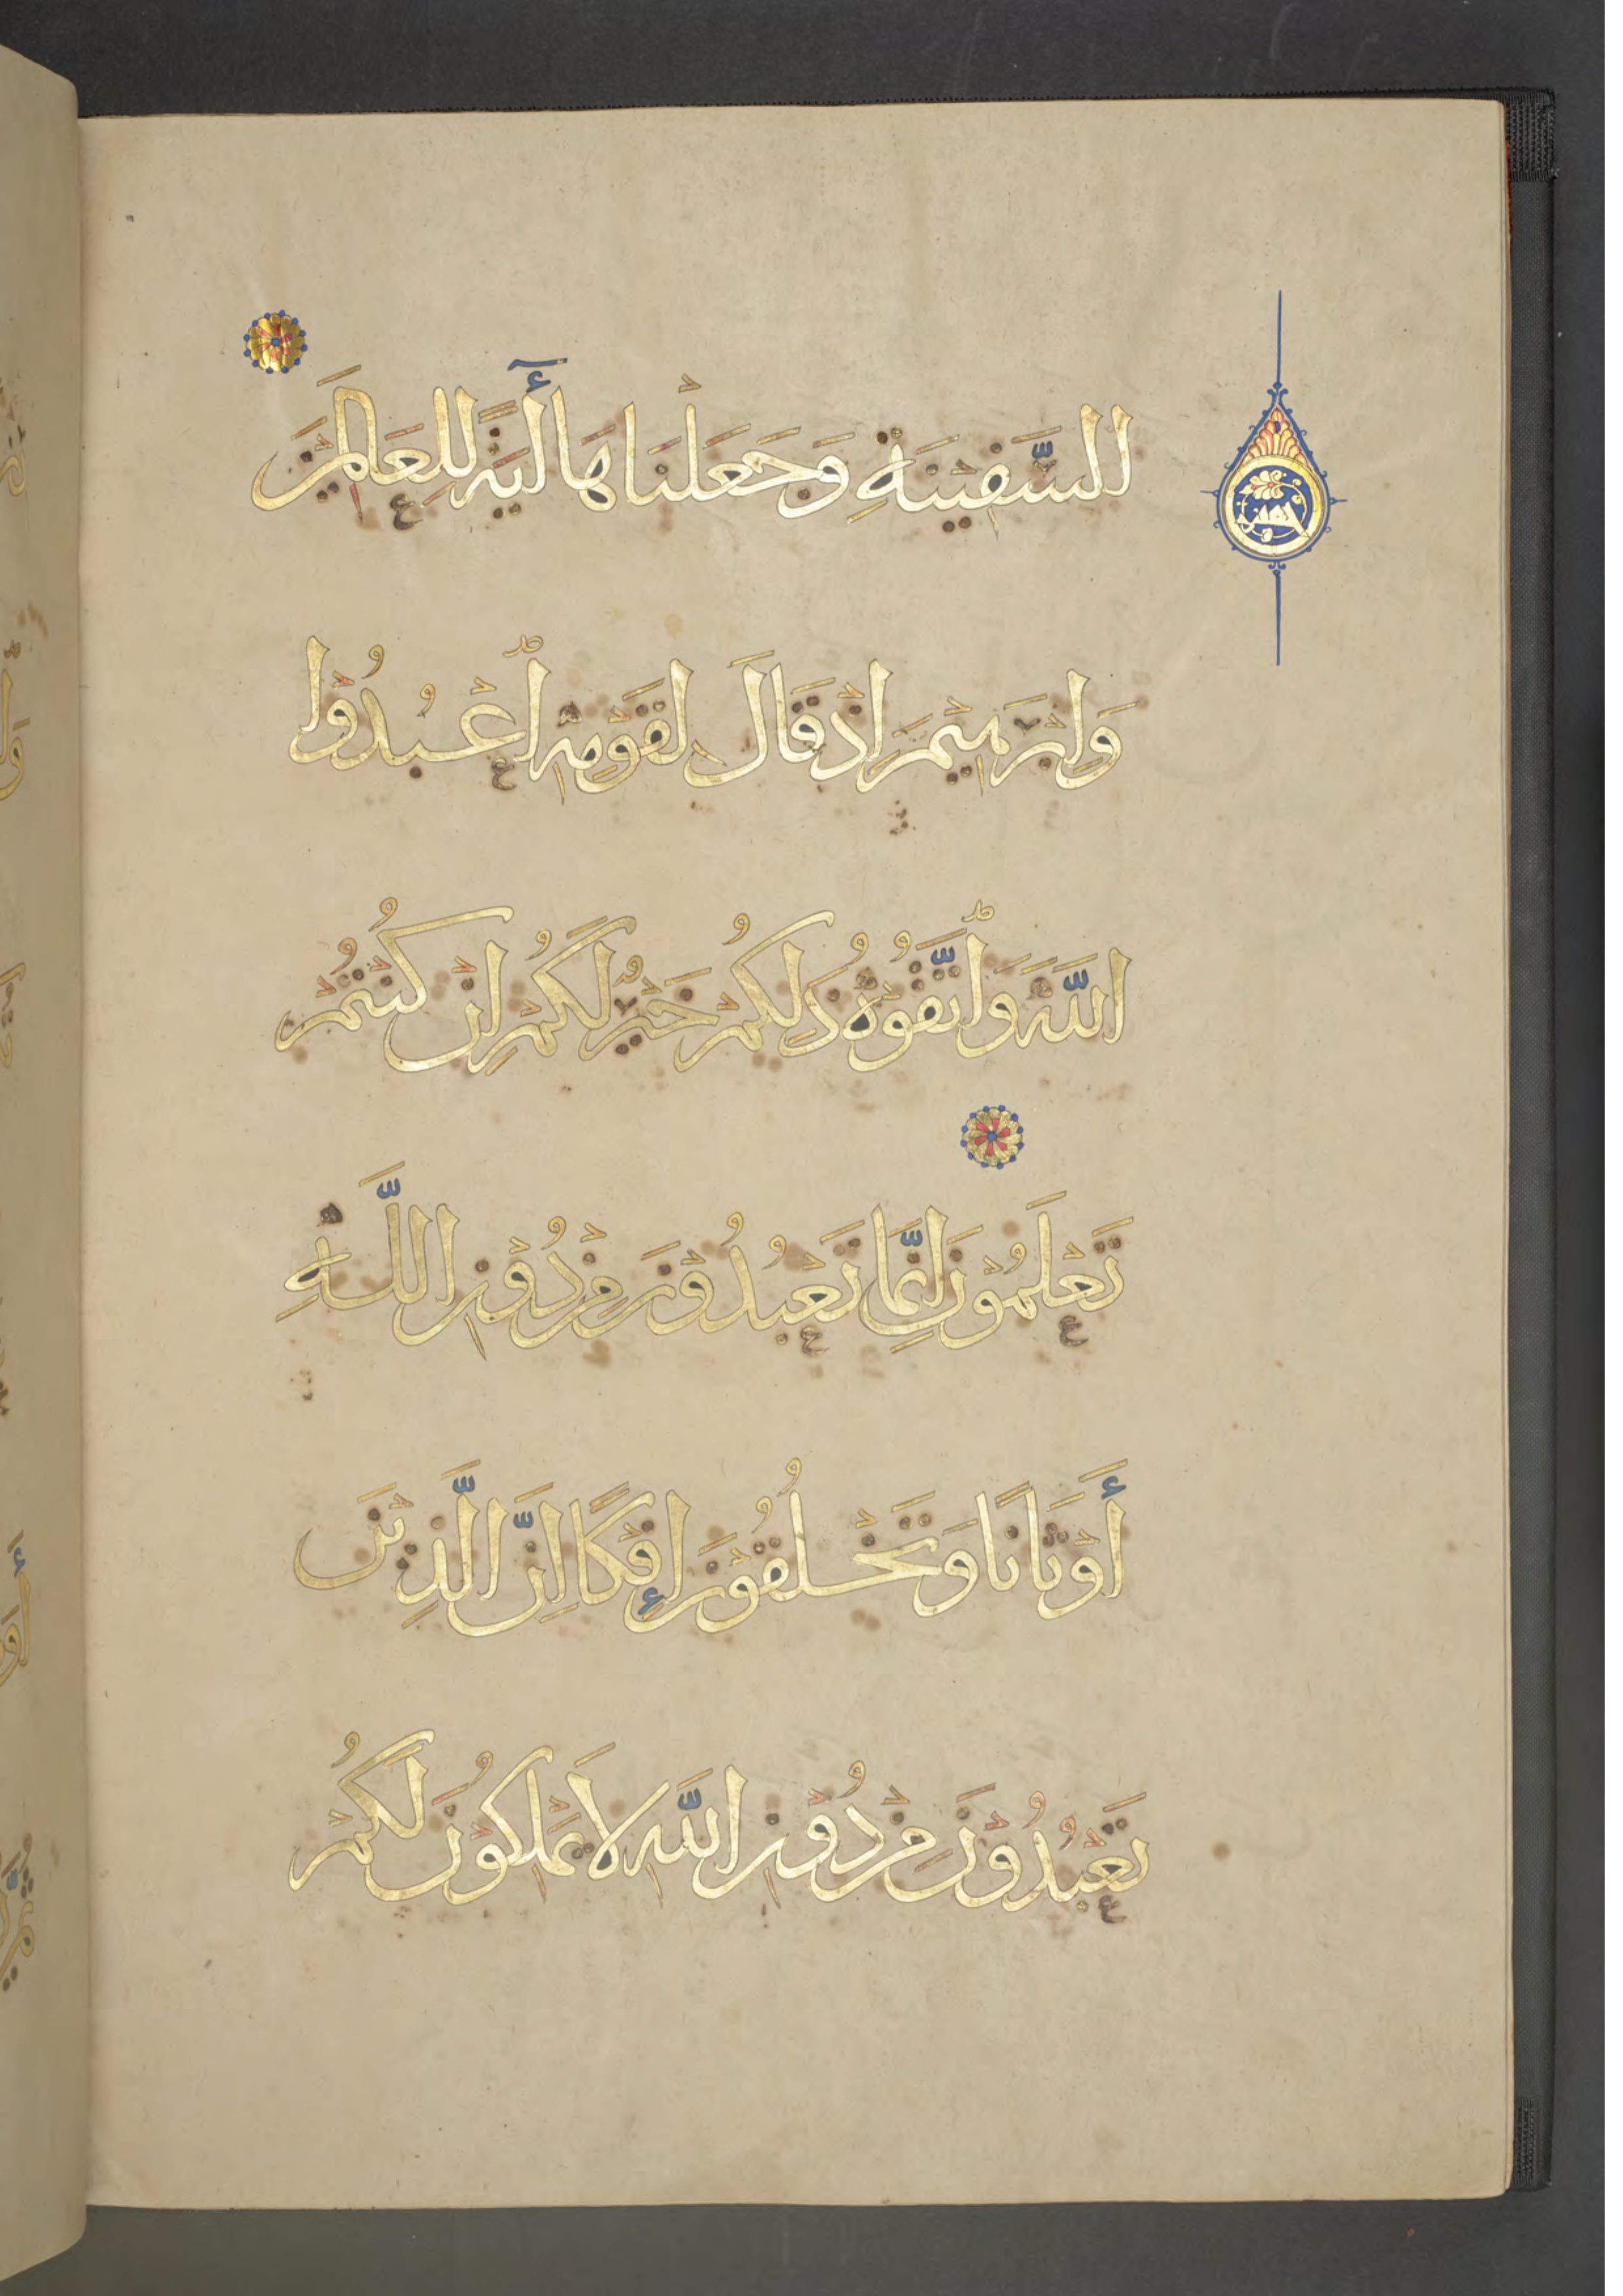 السَّفِيْنَةِ وَجَعَلْنَاهَا أٓيَةً لِلْعَالَمِيْنَ
وَاِبْرَهِيْمَ اِذْ قَالَ لِقَوْمِهِ ٱعْبُدُوْا
اللّٰهَ وَٱتَّقُوْهُ ذَلِكُمْ خَيْرٌ لَكُمْ اِنْ كُنْتُمْ
تَعْلَمُوْنَ اِنَّمَا تَعْبُدُوْنَ مِنْ دُوْنِ اللَّهِ
أَوْثَانًا وَتَخْلُقُوْنَ إِفْكًا اِنَّ الَّذِيْنَ
تَعْبُدُوْنَ مِنْ دُوْنِ اللّٰهِ لَا يَمْلِكُوْنَ لَكُمْ